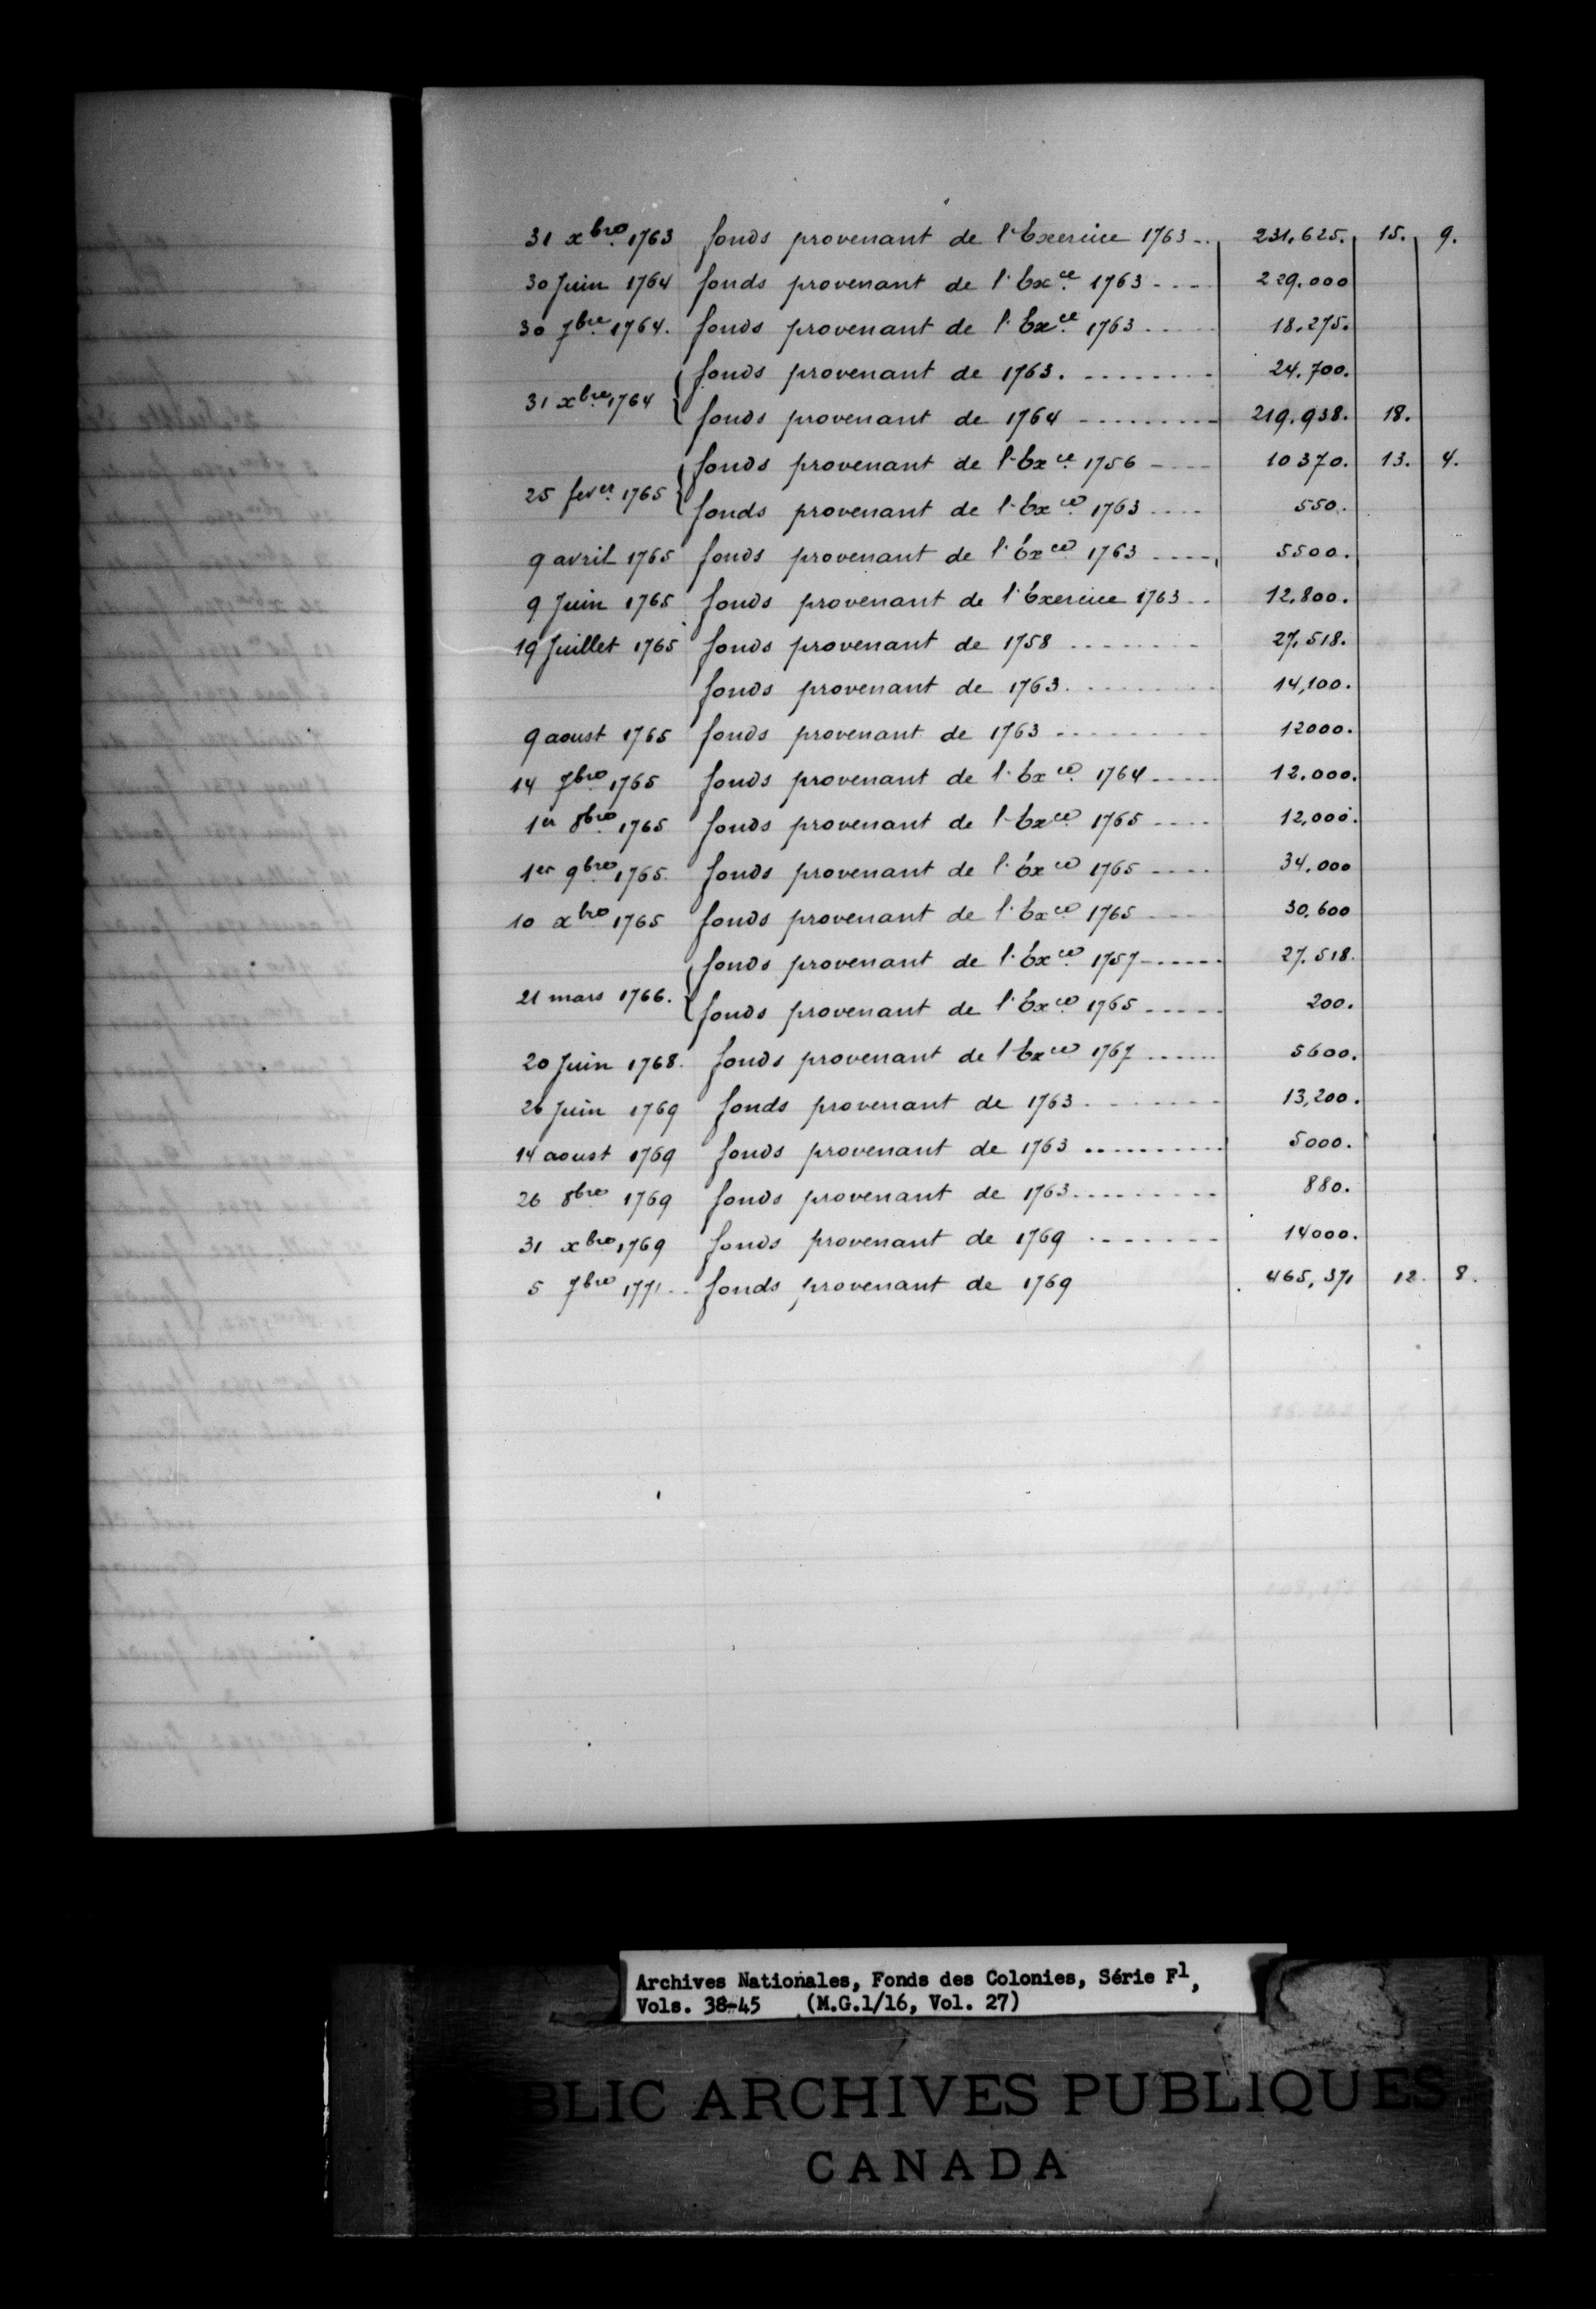 31 xbre 1763 fonds provenant de l'Exercice 1763 -. 231,625. 15. 9.
30 Juin 1764 fonds provenant de l'Exce 1763 - - - 229.000
30 7bre 1764. fonds provenant de l'Exce 1763 - - - - 18.275.
fonds provenant de 1763. - - - - - - - - 24.700.
31 xbre 1764 { fonds provenant de 1764 - - - - - - - - 219.938. 18.
fonds provenant de l'Exce 1756 - - - 10370. 13. 4.
25 fever 1765 { fonds provenant de l'Exce 1763 - - - - 550.
9 avril 1765 fonds provenant de l'Exce 1763 - - - - 5500.
9 Juin 1765 fonds provenant de l'Exercice 1763 - - 12.800.
19 Juillet 1765 fonds provenant de 1758 - - - - - - - - 27.518.
fonds provenant de 1763. - - - - - - - - 14,100.
9 aoust 1765 fonds provenant de 1763 - - - - - - - - 12000.
14 7bre 1765 fonds provenant de l'Exce 1764 - - - - 12.000.
1er 8bre 1765 fonds provenant de l'Exce 1765 - - - - 12,000.
1er 9bre 1765. fonds provenant de l'Exce 1765 - - - - 34.000
10 xbre 1765 fonds provenant de l'Exce 1765 - - - - 30.600
fonds provenant de l'Exce 1757 - - - - - 27.518.
21 mars 1766. { fonds provenant de l'Exce 1765 - - - - - 200.
20 Juin 1768. fonds provenant de l'Exce 1767 - - - - - 5600.
26 Juin 1769 fonds provenant de 1763 - - - - - - - - 13,200.
14 aoust 1769 fonds provenant de 1763 - - - - - - - - 5000.
26 8bre 1769 fonds provenant de 1763 - - - - - - - - 880.
31 xbre 1769 fonds provenant de 1769 - - - - - - - 14000.
5 7bre 1771 - - fonds provenant de 1769 465,371 12. 8.
Archives Nationales, Fonds des Colonies, Série F1,
Vols. 38-45 (M.G.1/16, Vol. 27)
BLIC ARCHIVES PUBLIQUES
CANADA